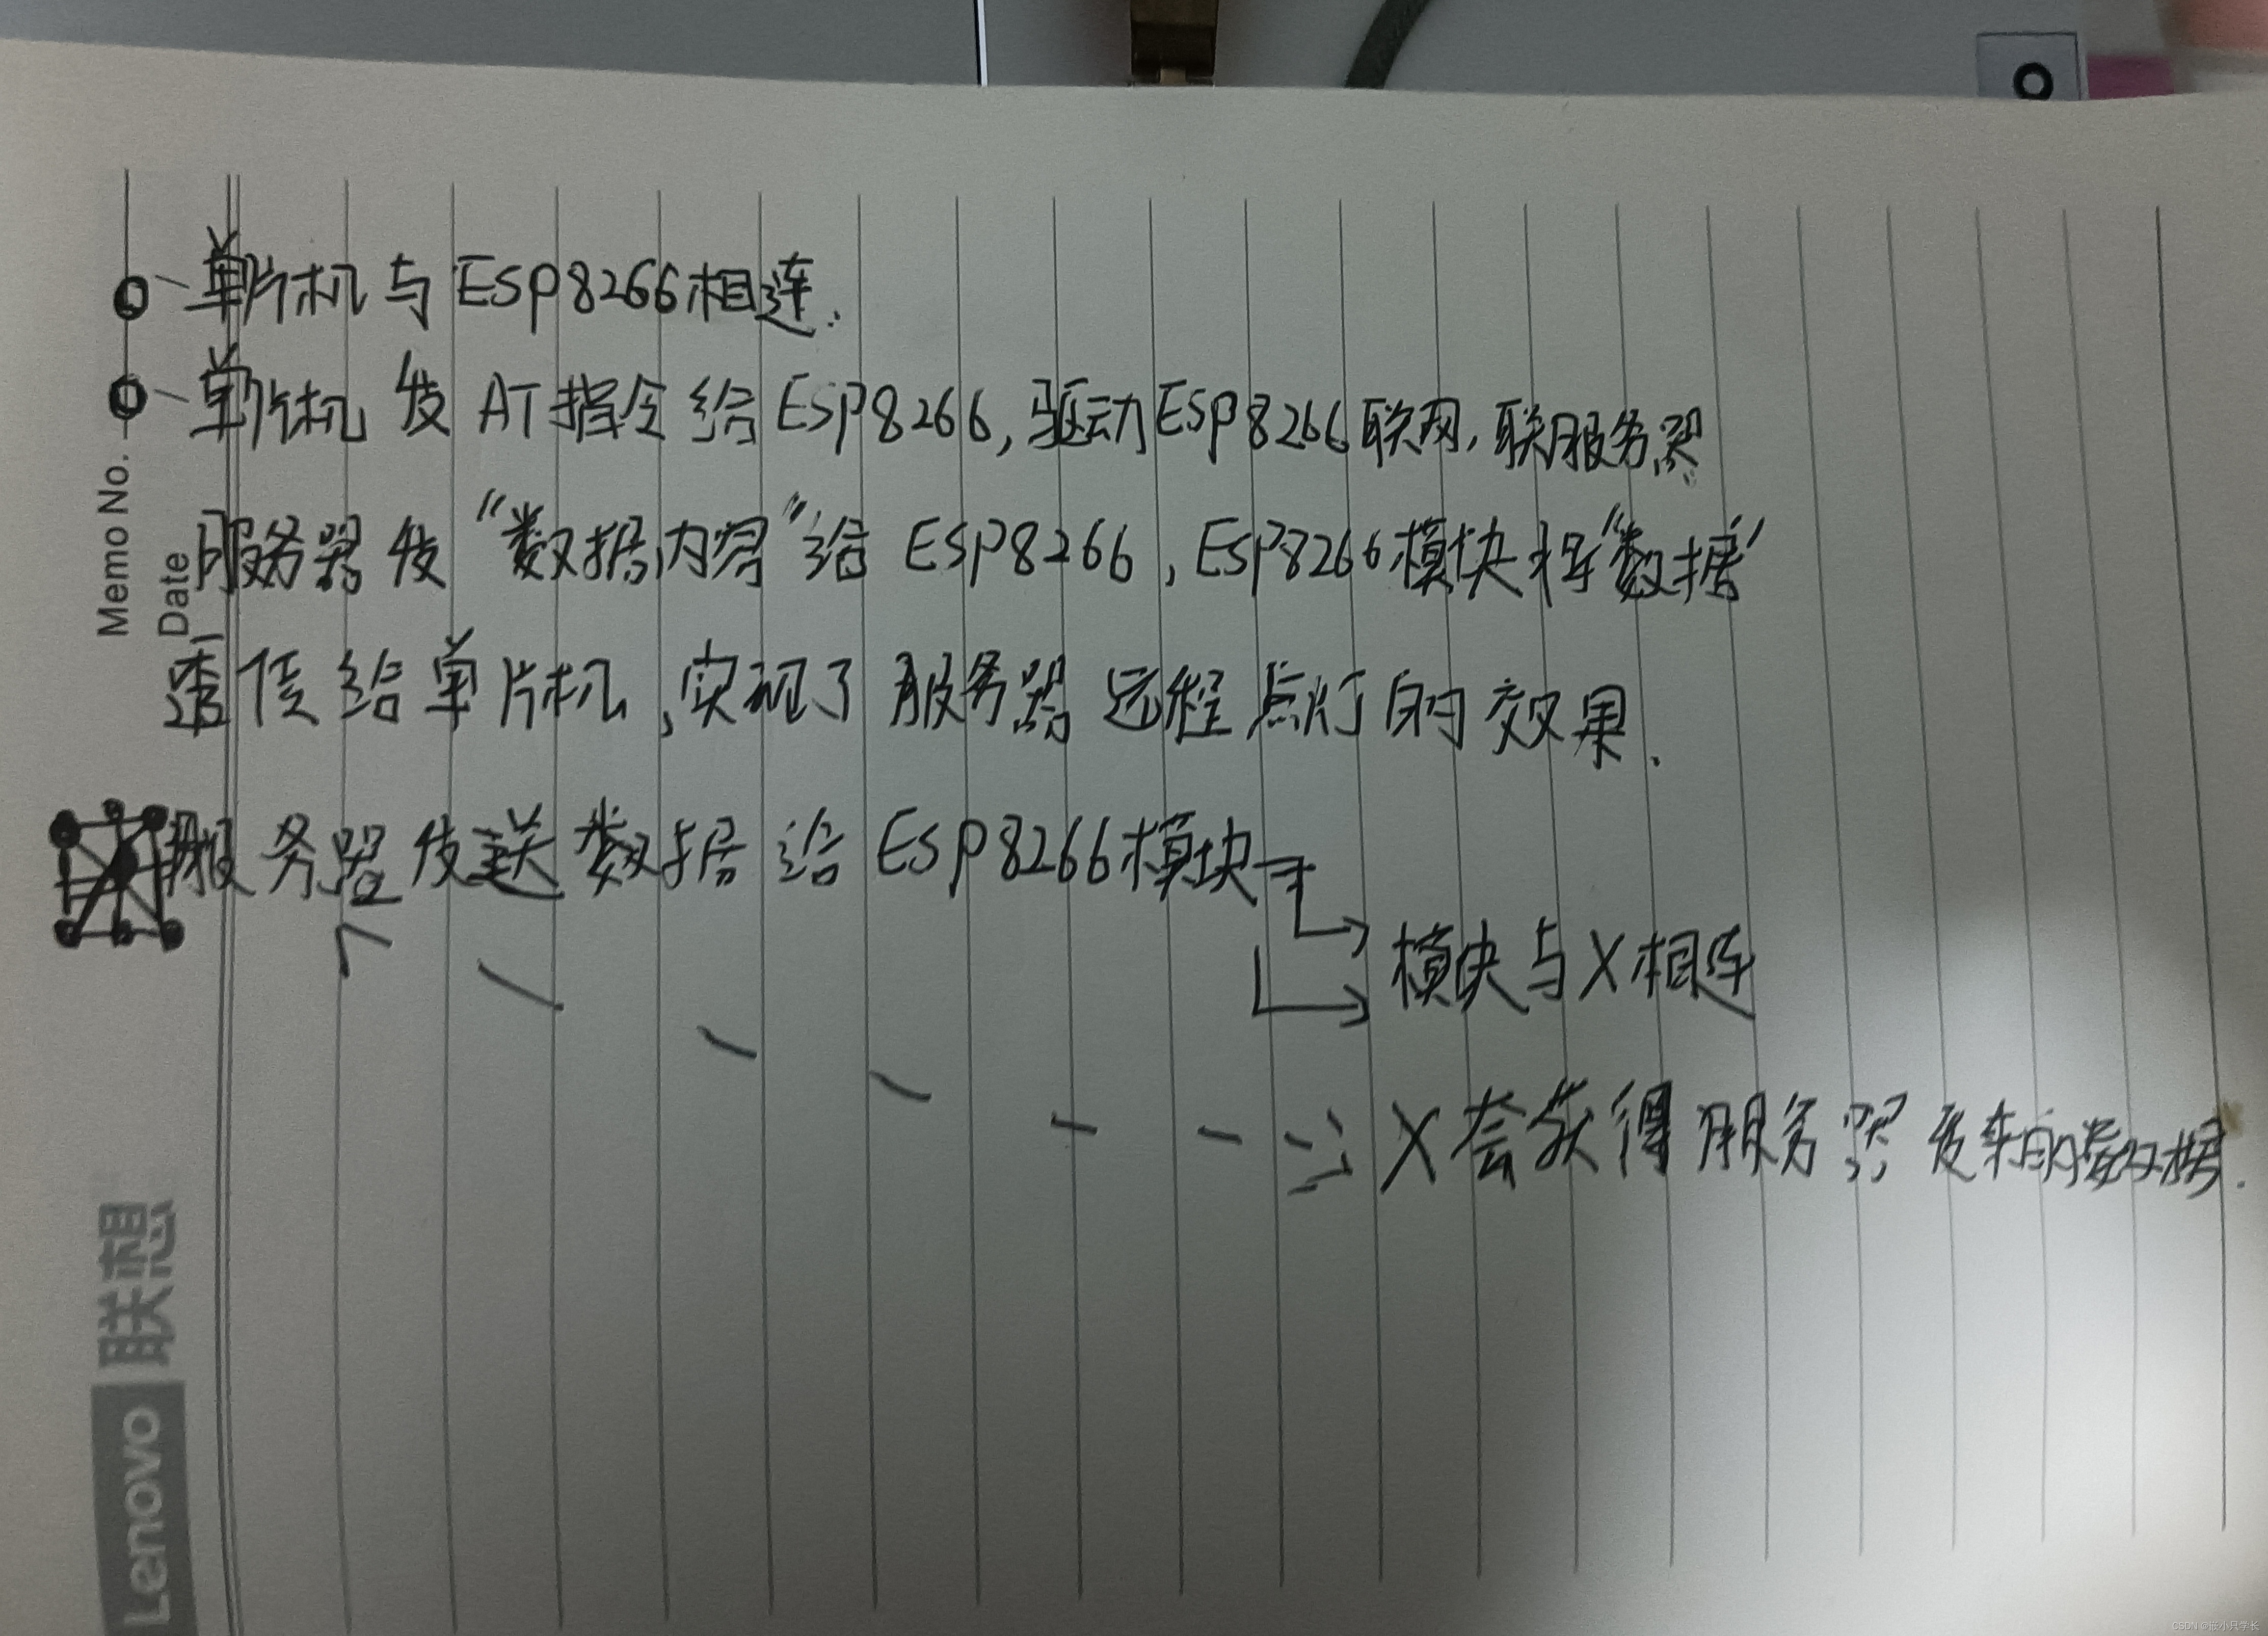 单片机与ESP8266相连.
单片机发AT指令给ESP8266,驱动ESP8266联网,联服务器
服务器发“数据内容”给ESP8266,ESP8266模块将“数据”
透传给单片机,实现了服务器远程点灯的效果.
服务器发送数据给ESP8266模块
模块与X相连
X会获得服务器发来的数据.
Memo No.
Date
Lenovo 联想
CSDN @侯小只学长